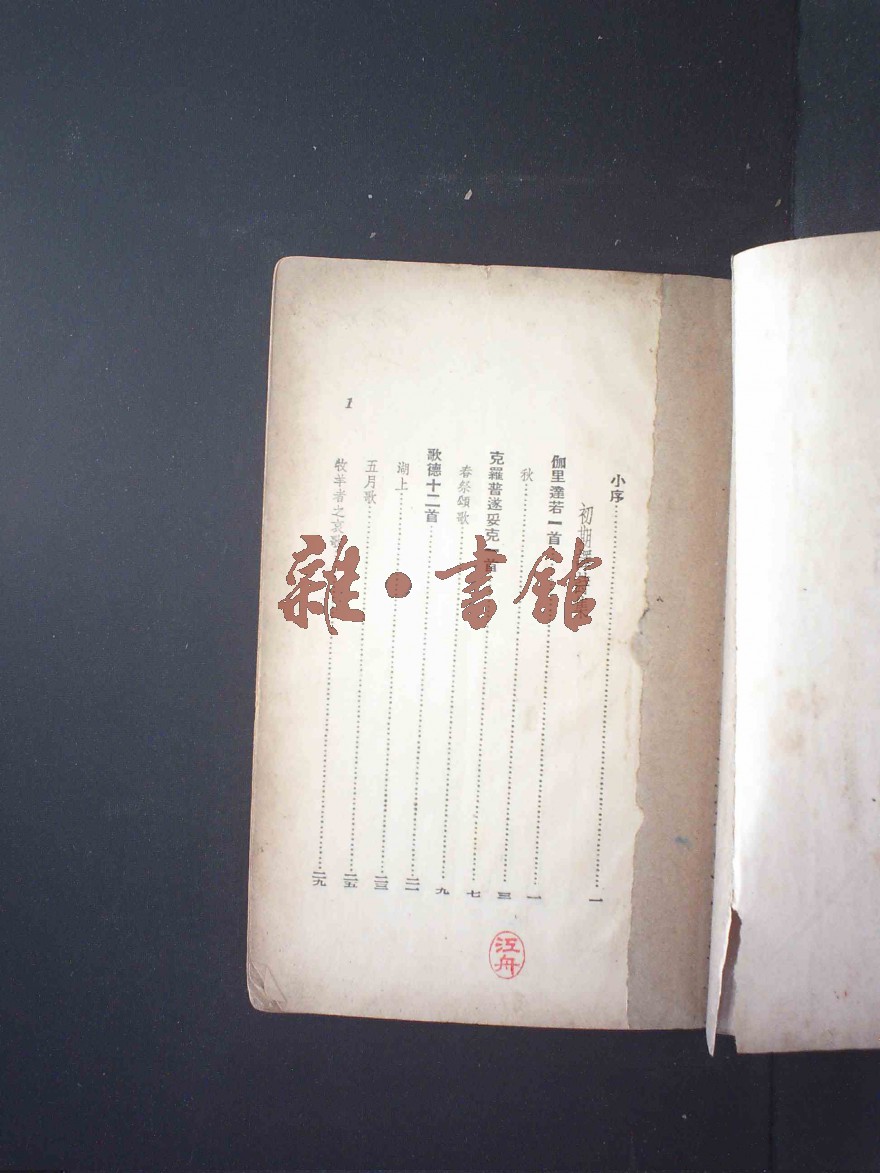 小序……一
初期
伽里達若一首……一
秋……三
克羅普遂妥克一首……七
春祭頌歌……九
歌德十二首……二一
湖上……二三
五月歌……二五
牧羊者之哀歌……二九
1
雜·書館
江舟